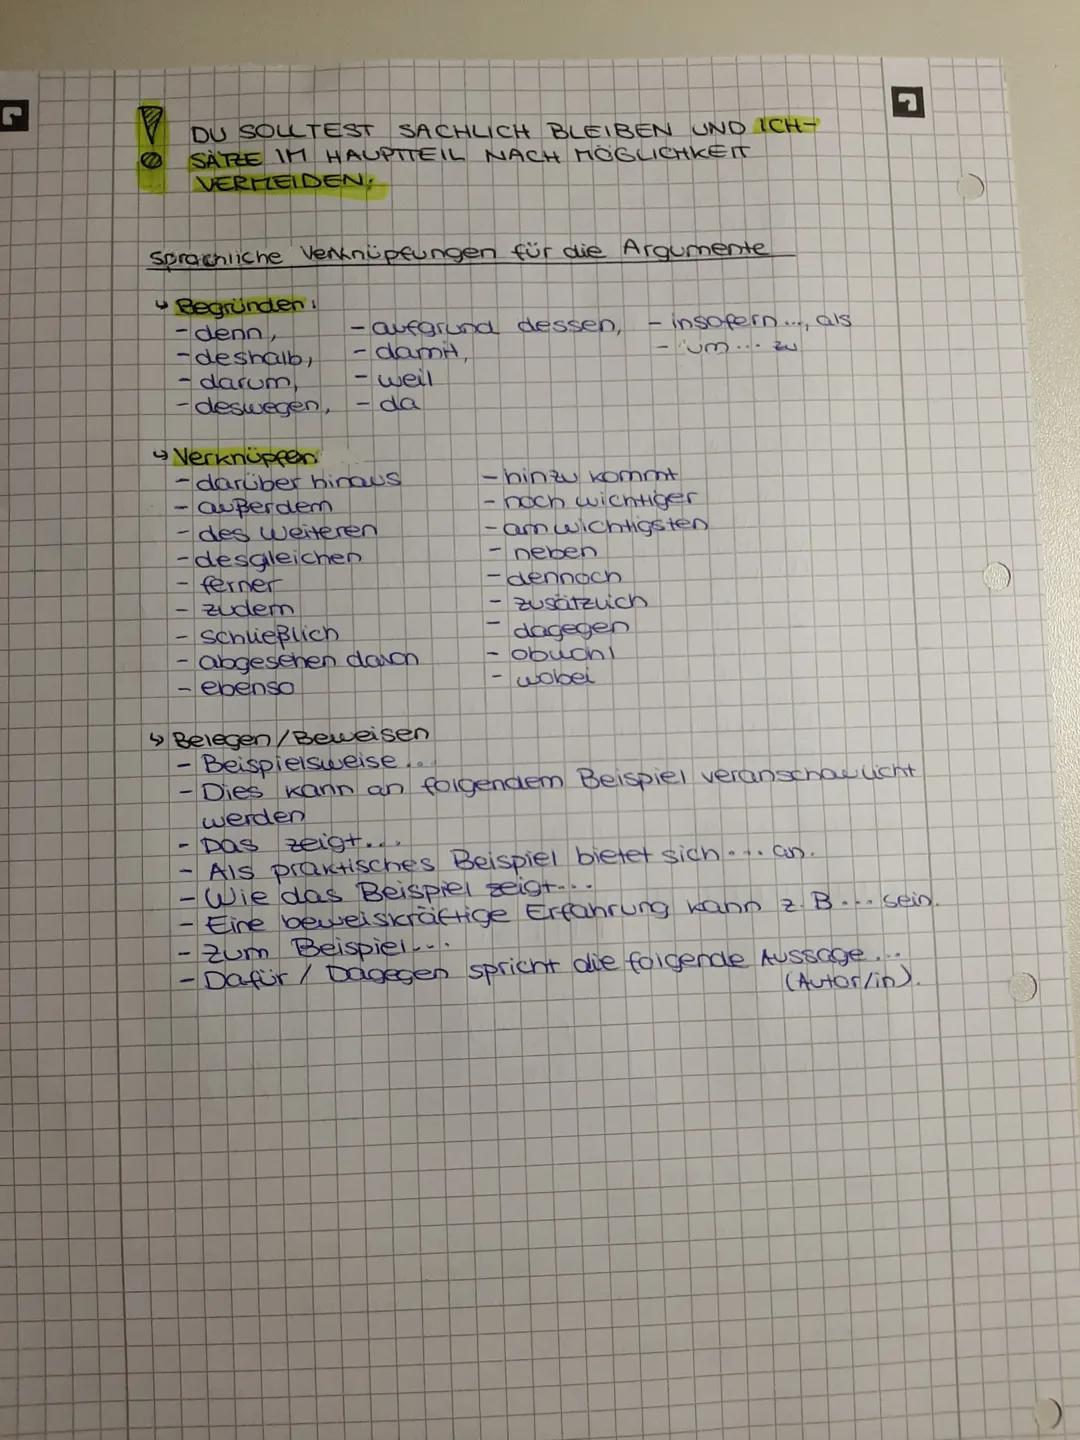 DU SOLLTEST SACHLICH BLEIBEN UND ICH-
SÄTZE IM HAUPTTEIL NACH MÖGLICHKEIT
VERMEIDEN.
Sprachliche Verknüpfungen für die Argumente
↳ Begründen:
- denn, - aufgrund dessen, - insofern..., als
- deshalb, - damit, - um... zu
- darum, - weil
- deswegen, - da
↳ Verknüpfen
- darüber hinaus - hinzu kommt
- außerdem - noch wichtiger
- des weiteren - am wichtigsten
- desgleichen - neben
- ferner - dennoch
- zudem - zusätzlich
- schließlich - dagegen
- abgesehen davon - obwohl
- ebenso - wobei
↳ Belegen/Beweisen
- Beispielsweise...
- Dies kann an folgendem Beispiel veranschaulicht
werden
- Das zeigt...
- Als praktisches Beispiel bietet sich... an.
- Wie das Beispiel zeigt...
- Eine beweiskräftige Erfahrung kann z.B... sein.
- Zum Beispiel...
- Dafür / Dagegen spricht die folgende Aussage...
(Autor/in).